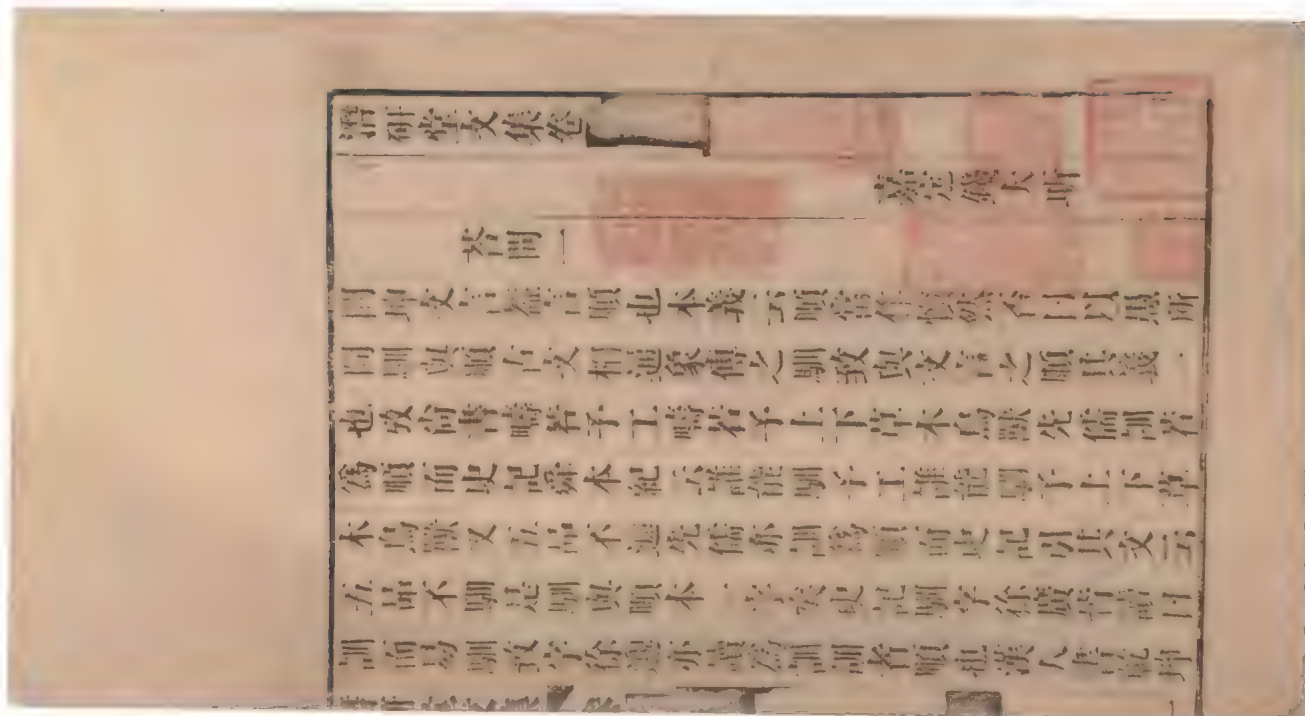 潛研堂文集卷
嘉定錢大昕
答問一
問坤文言蓋言順也本義云順當作慎然否曰以愚所
聞馴與順古文相通象傳之馴致與文言之順其義一
也攷尚書疇若予工疇若予上下草木鳥獸先儒訓若
為順而史記舜本紀云誰能馴予工誰能馴予上下草
木鳥獸又五品不遜先儒亦訓為順而史記引其文云
五品不馴是馴與順本一字矣史記馴字徐廣皆讀曰
訓而易馴致字徐邈亦讀為訓訓者順也漢人